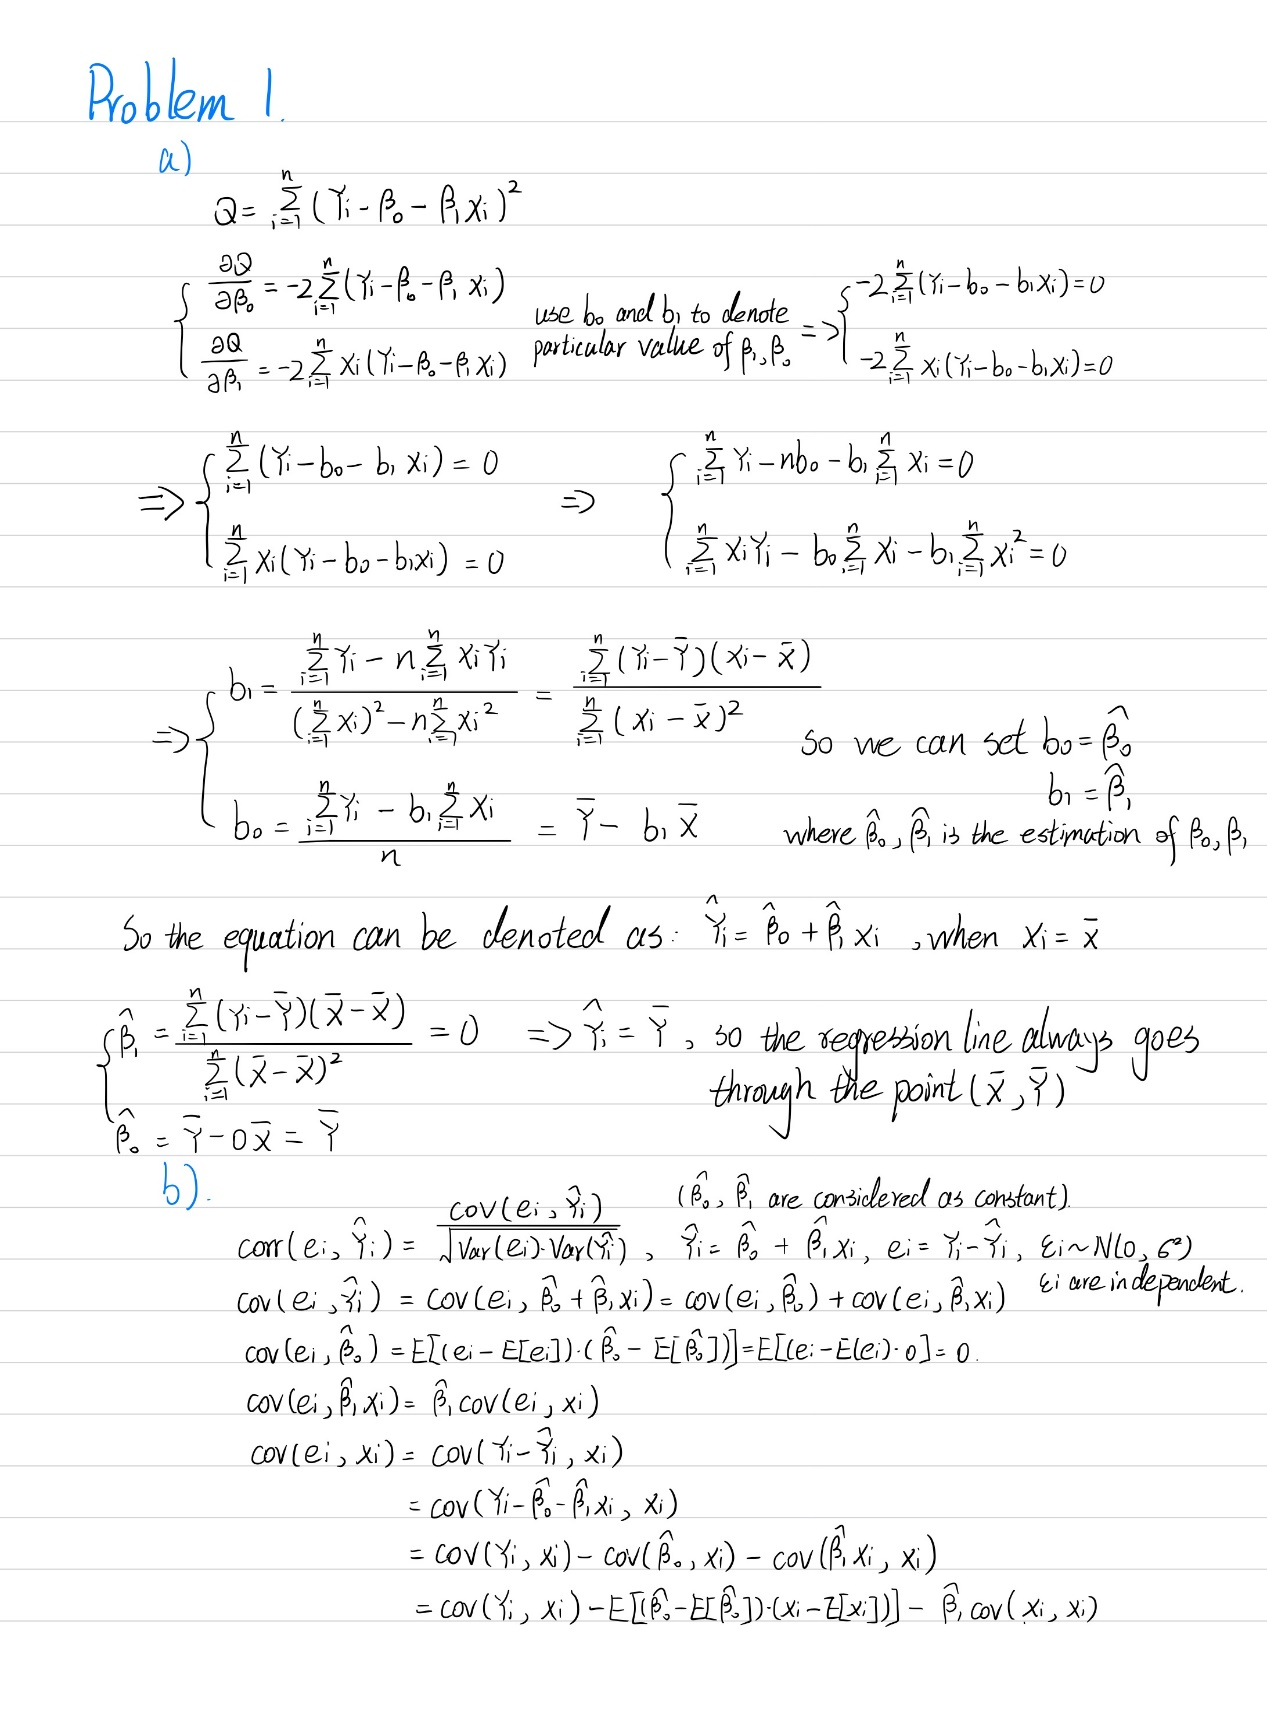 Problem 1.
a)
Q = \sum_{i=1}^{n} (Y_i - β_0 - β_1 X_i)^2
{ ∂Q/∂β_0 = -2 \sum_{i=1}^{n} (Y_i - β_0 - β_1 X_i)
∂Q/∂β_1 = -2 \sum_{i=1}^{n} X_i (Y_i - β_0 - β_1 X_i)
use b_0 and b_1 to denote
particular value of β_1, β_0
=> { -2 \sum_{i=1}^{n} (Y_i - b_0 - b_1 X_i) = 0
-2 \sum_{i=1}^{n} X_i (Y_i - b_0 - b_1 X_i) = 0
=> { \sum_{i=1}^{n} (Y_i - b_0 - b_1 X_i) = 0
\sum_{i=1}^{n} X_i (Y_i - b_0 - b_1 X_i) = 0
=> { \sum_{i=1}^{n} Y_i - n b_0 - b_1 \sum_{i=1}^{n} X_i = 0
\sum_{i=1}^{n} X_i Y_i - b_0 \sum_{i=1}^{n} X_i - b_1 \sum_{i=1}^{n} X_i^2 = 0
=> { b_1 = \frac{\sum_{i=1}^{n} Y_i - n \sum_{i=1}^{n} X_i Y_i}{(\sum_{i=1}^{n} X_i)^2 - n \sum_{i=1}^{n} X_i^2} = \frac{\sum_{i=1}^{n} (Y_i - \bar{Y})(X_i - \bar{X})}{\sum_{i=1}^{n} (X_i - \bar{X})^2}
b_0 = \frac{\sum_{i=1}^{n} Y_i - b_1 \sum_{i=1}^{n} X_i}{n} = \bar{Y} - b_1 \bar{X}
So we can set b_0 = \hat{β_0}
b_1 = \hat{β_1}
where \hat{β_0}, \hat{β_1} is the estimation of β_0, β_1
So the equation can be denoted as: \hat{Y_i} = \hat{β_0} + \hat{β_1} X_i , when X_i = \bar{X}
{ \hat{β_1} = \frac{\sum_{i=1}^{n} (Y_i - \bar{Y})(\bar{X} - \bar{X})}{\sum_{i=1}^{n} (\bar{X} - \bar{X})^2} = 0
\hat{β_0} = \bar{Y} - 0\bar{X} = \bar{Y}
=> \hat{Y_i} = \bar{Y} , so the regression line always goes
through the point (\bar{X}, \bar{Y})
b).
(\hat{β_0}, \hat{β_1} are considered as constant).
corr(e_i, \hat{Y_i}) = \frac{cov(e_i, \hat{Y_i})}{\sqrt{Var(e_i)·Var(\hat{Y_i})}} , \hat{Y_i} = \hat{β_0} + \hat{β_1} X_i , e_i = Y_i - \hat{Y_i} , ε_i ~ N(0, σ^2)
ε_i are independent.
cov(e_i, \hat{Y_i}) = cov(e_i, \hat{β_0} + \hat{β_1} X_i) = cov(e_i, \hat{β_0}) + cov(e_i, \hat{β_1} X_i)
cov(e_i, \hat{β_0}) = E[(e_i - E[e_i])·(\hat{β_0} - E[\hat{β_0}])] = E[(e_i - E(e_i)·0] = 0.
cov(e_i, \hat{β_1} X_i) = \hat{β_1} cov(e_i, X_i)
cov(e_i, X_i) = cov(Y_i - \hat{Y_i}, X_i)
= cov(Y_i - \hat{β_0} - \hat{β_1} X_i, X_i)
= cov(Y_i, X_i) - cov(\hat{β_0}, X_i) - cov(\hat{β_1} X_i, X_i)
= cov(Y_i, X_i) - E[(\hat{β_0} - E[\hat{β_0}])·(X_i - E[X_i])] - \hat{β_1} cov(X_i, X_i)